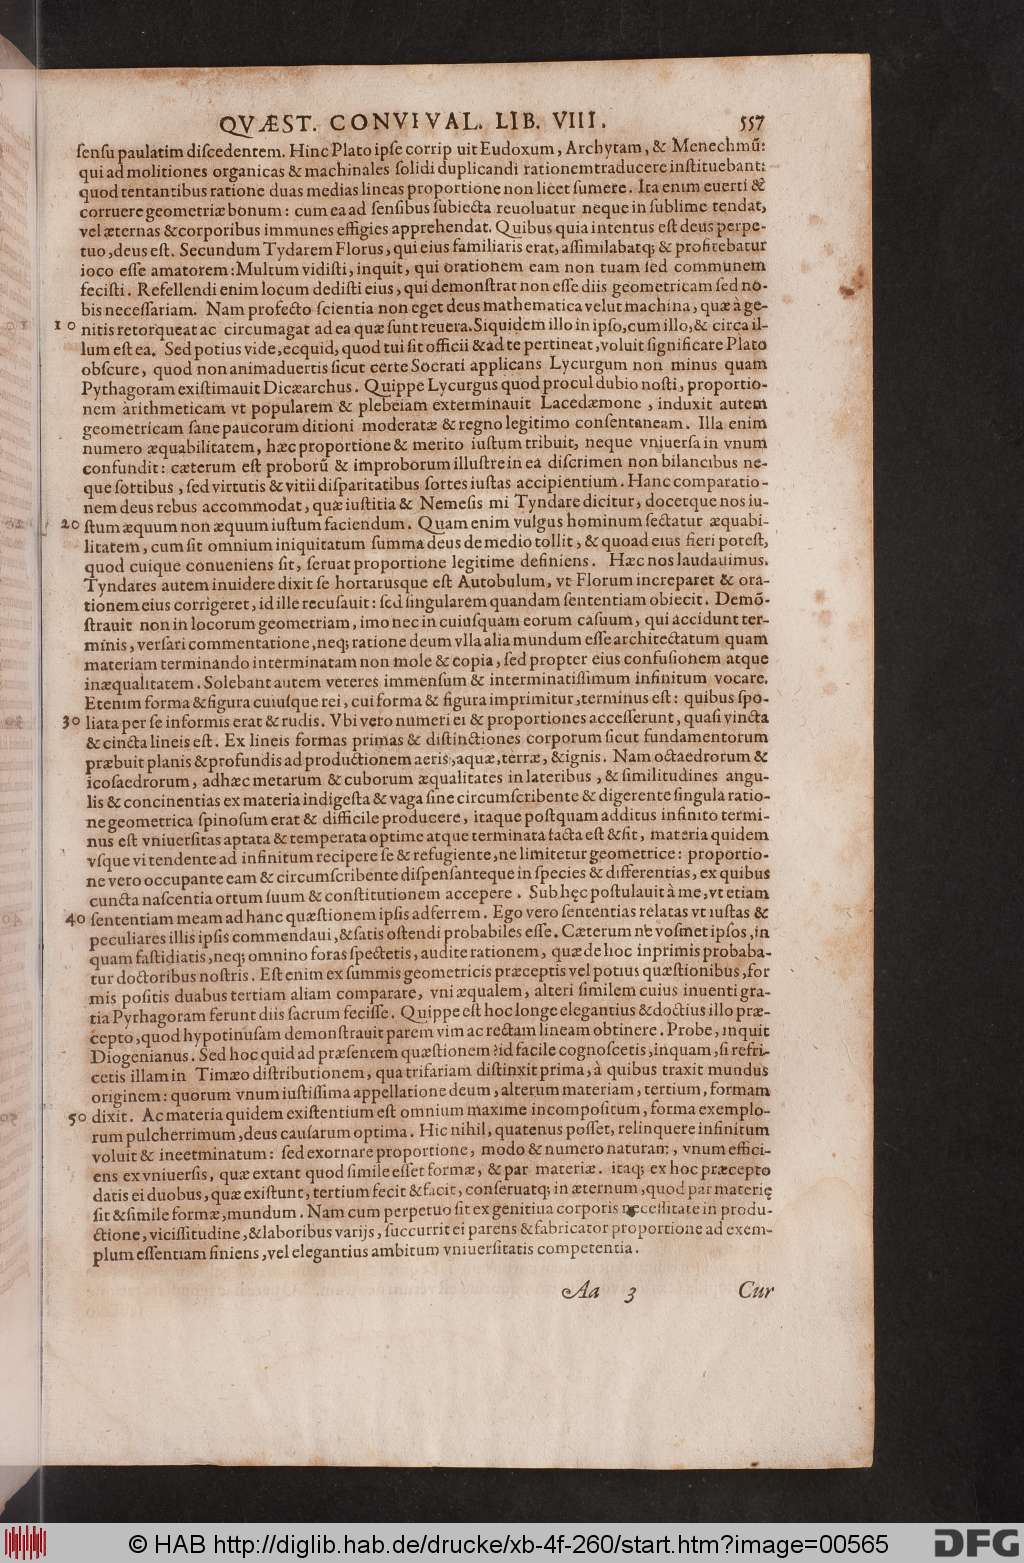 QVÆST. CONVIVAL. LIB. VIII. 557
ſenſu paulatim diſcedentem. Hinc Plato ipſe corrip uit Eudoxum, Archytam, & Menechmũ:
qui ad molitiones organicas & machinales ſolidi duplicandi rationemtraducere inſtituebant:
quod tentantibus ratione duas medias lineas proportione non licet ſumere. Ita enim euerti &
corruere geometriæ bonum: cum ea ad ſenſibus ſubiecta reuoluatur neque in ſublime tendat,
vel æternas & corporibus immunes effigies apprehendat. Quibus quia intentus eſt deus perpe-
tuo, deus eſt. Secundum Tydarem Florus, qui eius familiaris erat, aſſimilabatq; & profitebatur
ioco eſſe amatorem: Multum vidiſti, inquit, qui orationem eam non tuam ſed communem
feciſti. Refellendi enim locum dediſti eius, qui demonſtrat non eſſe diis geometricam ſed no-
bis neceſſariam. Nam profecto ſcientia non eget deus mathematica velut machina, quæ à ge-
10 nitis retorqueat ac circumagat ad ea quæ ſunt reuera. Siquidem illo in ipſo, cum illo, & circa il-
lum eſt ea. Sed potius vide, ecquid, quod tui ſit officii & ad te pertineat, voluit ſignificare Plato
obſcure, quod non animaduertis ſicut certe Socrati applicans Lycurgum non minus quam
Pythagoram exiſtimauit Dicæarchus. Quippe Lycurgus quod procul dubio noſti, proportio-
nem arithmeticam vt popularem & plebeiam exterminauit Lacedæmone, induxit autem
geometricam ſane paucorum ditioni moderatæ & regno legitimo conſentaneam. Illa enim
numero æquabilitatem, hæc proportione & merito iuſtum tribuit, neque vniuerſa in vnum
confundit: cæterum eſt proborũ & improborum illuſtre in ea diſcrimen non bilancibus ne-
que ſortibus, ſed virtutis & vitii diſparitatibus ſortes iuſtas accipientium. Hanc comparatio-
nem deus rebus accommodat, quæ iuſtitia & Nemeſis mi Tyndare dicitur, docetque nos iu-
20 ſtum æquum non æquum iuſtum faciendum. Quam enim vulgus hominum ſectatur æquabi-
litatem, cum ſit omnium iniquitatum ſumma deus de medio tollit, & quoad eius fieri poteſt,
quod cuique conueniens ſit, ſeruat proportione legitime definiens. Hæc nos laudauimus.
Tyndares autem inuidere dixit ſe hortatusque eſt Autobulum, vt Florum increparet & ora-
tionem eius corrigeret, id ille recuſauit: ſed ſingularem quandam ſententiam obiecit. Demõ-
ſtrauit non in locorum geometriam, imo nec in cuiuſquam eorum caſuum, qui accidunt ter-
minis, verſari commentatione, neq; ratione deum vlla alia mundum eſſe architectatum quam
materiam terminando interminatam non mole & copia, ſed propter eius confuſionem atque
inæqualitatem. Solebant autem veteres immenſum & interminatiſſimum infinitum vocare.
Etenim forma & figura cuiuſque rei, cui forma & figura imprimitur, terminus eſt: quibus ſpo-
30 liata per ſe informis erat & rudis. Vbi vero numeri ei & proportiones acceſſerunt, quaſi vincta
& cincta lineis eſt. Ex lineis formas primas & diſtinctiones corporum ſicut fundamentorum
præbuit planis & profundis ad productionem aeris, aquæ, terræ, & ignis. Nam octaedrorum &
icoſaedrorum, adhæc metarum & cuborum æqualitates in lateribus, & ſimilitudines angu-
lis & concinentias ex materia indigeſta & vaga ſine circumſcribente & digerente ſingula ratio-
ne geometrica ſpinoſum erat & difficile producere, itaque poſtquam additus infinito termi-
nus eſt vniuerſitas aptata & temperata optime atque terminata facta eſt & fit, materia quidem
vſque vi tendente ad infinitum recipere ſe & refugiente, ne limitetur geometrice: proportio-
ne vero occupante eam & circumſcribente diſpenſanteque in ſpecies & differentias, ex quibus
cuncta naſcentia ortum ſuum & conſtitutionem accepere. Sub hęc poſtulauit à me, vt etiam
40 ſententiam meam ad hanc quæſtionem ipſis adferrem. Ego vero ſententias relatas vt iuſtas &
peculiares illis ipſis commendaui, & ſatis oſtendi probabiles eſſe. Cæterum ne voſmet ipſos, in
quam faſtidiatis, neq; omnino foras ſpectetis, audite rationem, quæ de hoc inprimis probaba-
tur doctoribus noſtris. Eſt enim ex ſummis geometricis præceptis vel potius quæſtionibus, for
mis poſitis duabus tertiam aliam comparare, vni æqualem, alteri ſimilem cuius inuenti gra-
tia Pythagoram ferunt diis ſacrum feciſſe. Quippe eſt hoc longe elegantius & doctius illo præ-
cepto, quod hypotinuſam demonſtrauit parem vim ac rectam lineam obtinere. Probe, inquit
Diogenianus. Sed hoc quid ad præſentem quæſtionem? id facile cognoſcetis, inquam, ſi refri-
cetis illam in Timæo diſtributionem, qua trifariam diſtinxit prima, à quibus traxit mundus
originem: quorum vnum iuſtiſſima appellatione deum, alterum materiam, tertium, formam
50 dixit. Ac materia quidem exiſtentium eſt omnium maxime incompoſitum, forma exemplo-
rum pulcherrimum, deus cauſarum optima. Hic nihil, quatenus poſſet, relinquere infinitum
voluit & ineetminatum: ſed exornare proportione, modo & numero naturam, vnum effici-
ens ex vniuerſis, quæ extant quod ſimile eſſet formæ, & par materiæ. itaq; ex hoc præcepto
datis ei duobus, quæ exiſtunt, tertium fecit & facit, conſeruatq; in æternum, quod par materię
ſit & ſimile formæ, mundum. Nam cum perpetuo ſit ex genitiua corporis neceſſitate in produ-
ctione, viciſſitudine, & laboribus varijs, ſuccurrit ei parens & fabricator proportione ad exem-
plum eſſentiam finiens, vel elegantius ambitum vniuerſitatis competentia.
Aa 3 Cur
© HAB http://diglib.hab.de/drucke/xb-4f-260/start.htm?image=00565 DFG